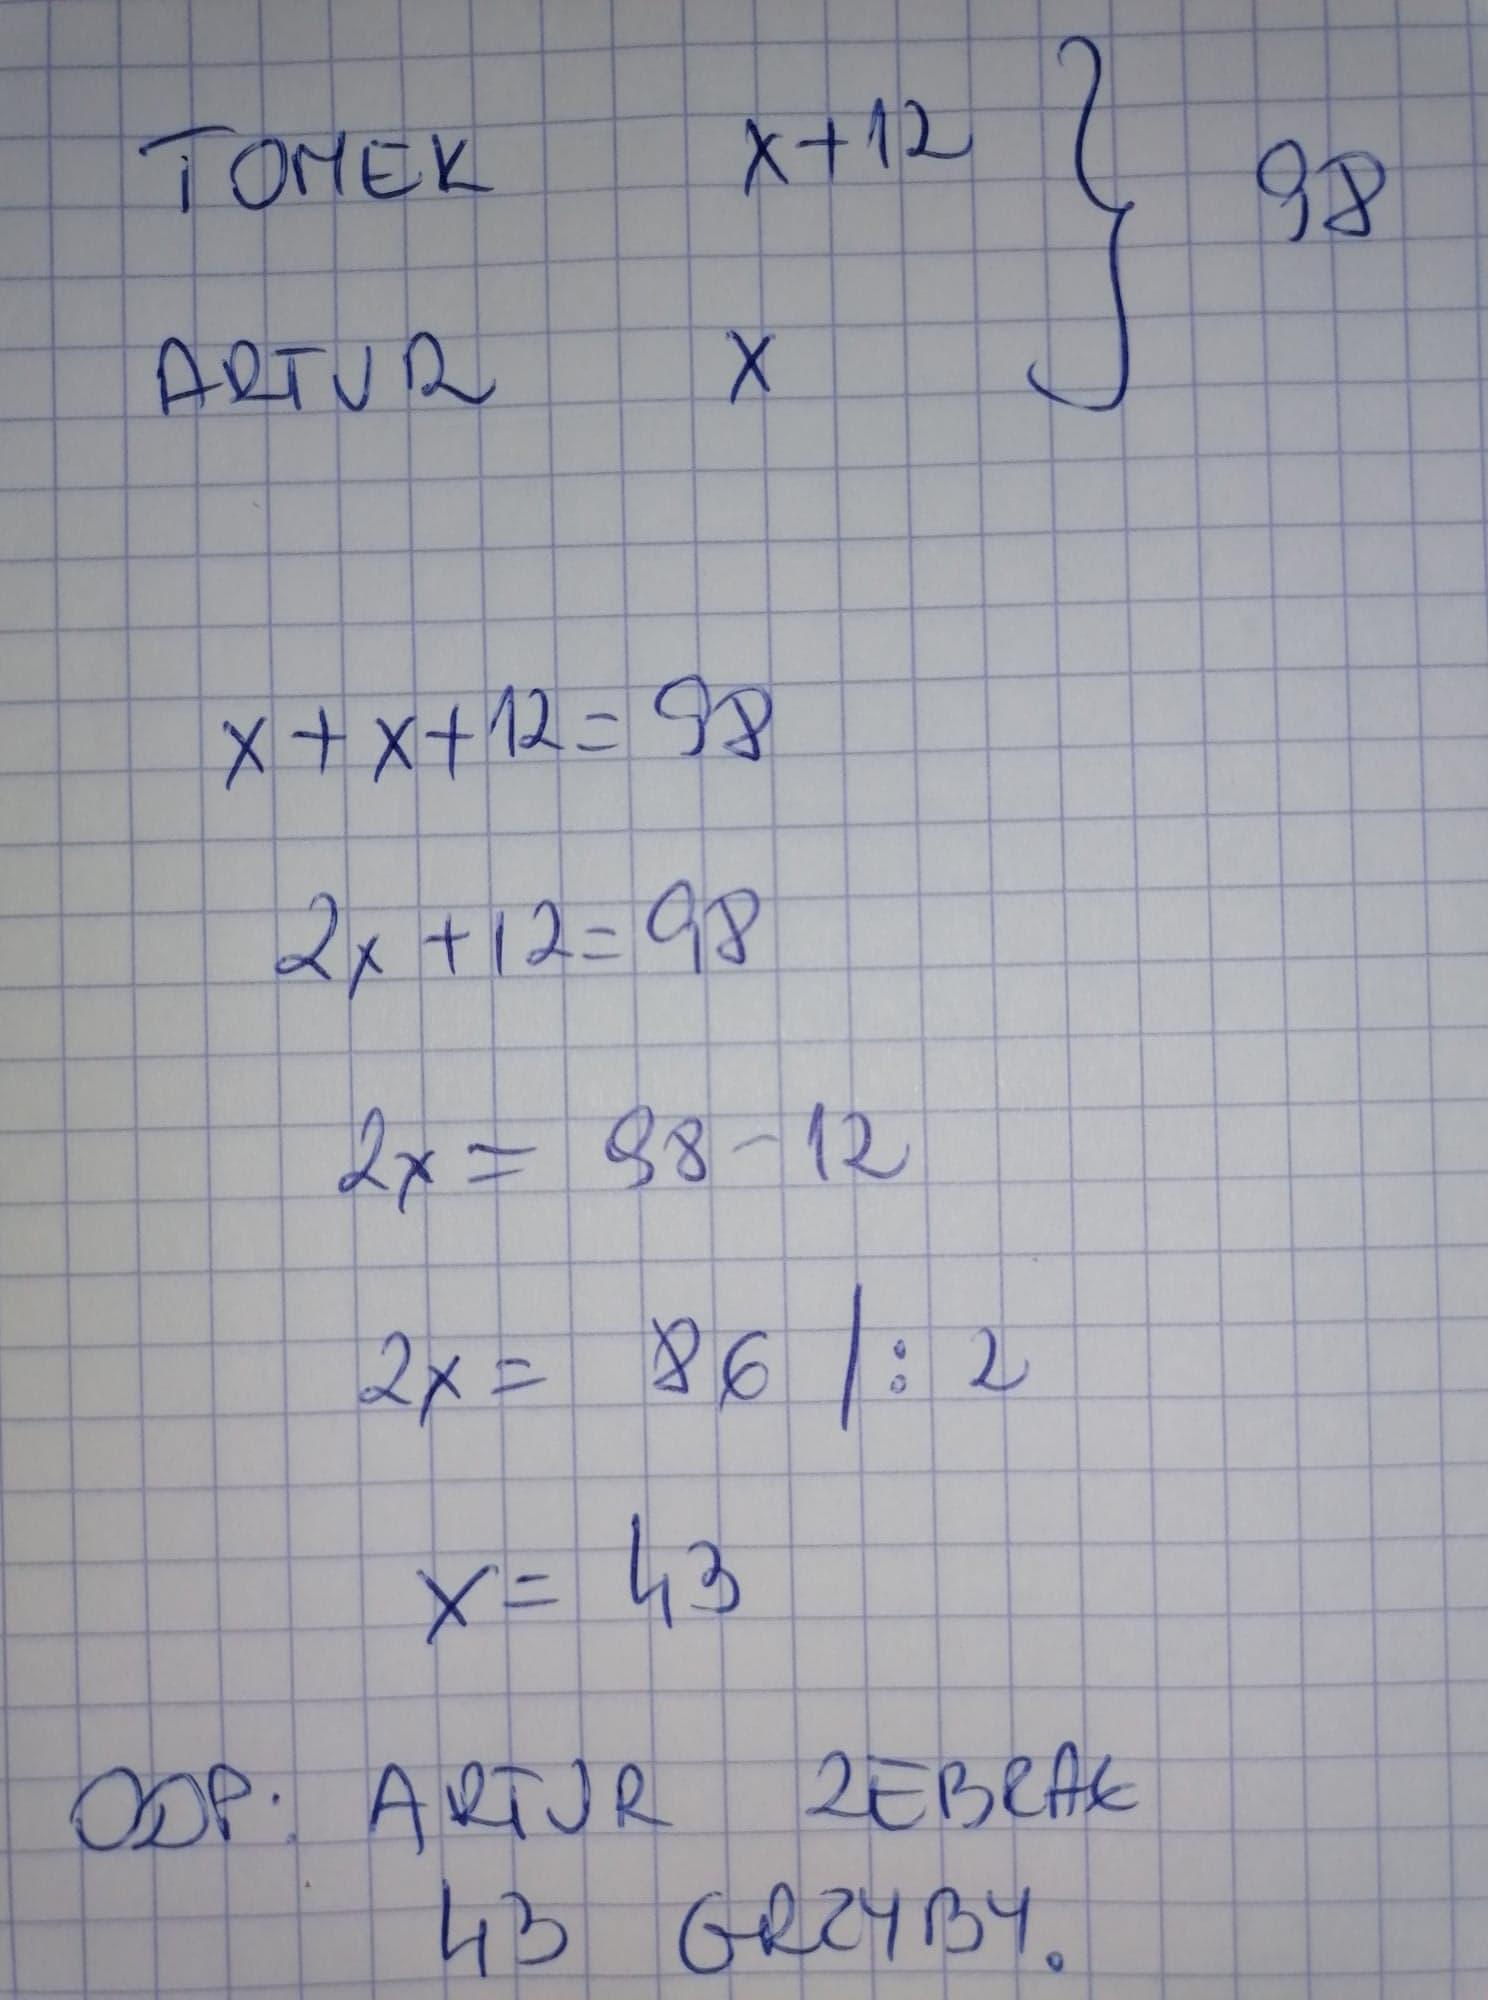 TOMEK x+12 } 98
ARTUR x
x+x+12=98
2x+12=98
2x= 98-12
2x= 86 /: 2
x= 43
ODP: ARTUR ZEBRAŁ
43 GRZYBY.